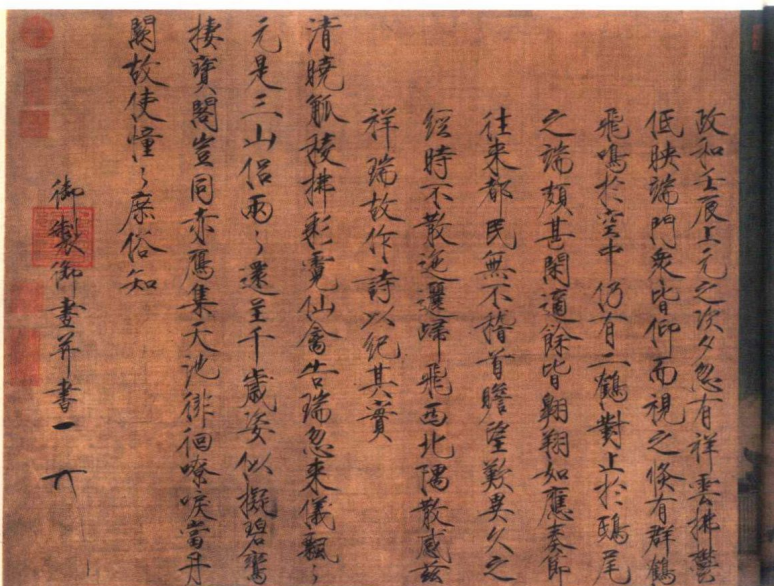 政和壬辰上元之次夕忽有祥雲拂欝
低映端門衆皆仰而視之倐有群鶴
飛鳴於空中仍有二鶴對止於鴟尾
之端頗甚閑適餘皆翱翔如應奏節
往来都民無不稽首瞻望歎異久之
經時不散迤邐歸飛西北隅散感兹
祥瑞故作詩以紀其實
清曉觚稜拂彩霓仙禽告瑞忽来儀飄〻
元是三山侶兩〻還呈千歳姿似擬碧鸞
棲寳閣豈同赤鴈集天池徘徊嘹唳當丹
闕故使憧〻庶俗知
御製御畫并書